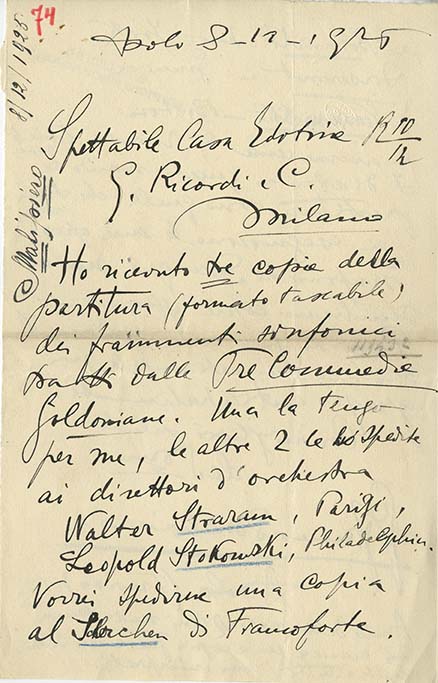 74
8/12/1926
Malipiero
Asolo 8-12-1926
Spettabile Casa Editrice R 10/12
G. Ricordi e C.
Milano
Ho ricevuto tre copie della
partitura (formato tascabile)
dei frammenti sinfonici
tratti dalle Tre Commedie
Goldoniane. Una la tengo
per me, le altre 2 le ho spedite
ai direttori d'orchestra
Walter Straram, Parigi,
Leopold Stokowski, Philadelphia.
Vorrei spedirne una copia
al Scherchen di Francoforte.